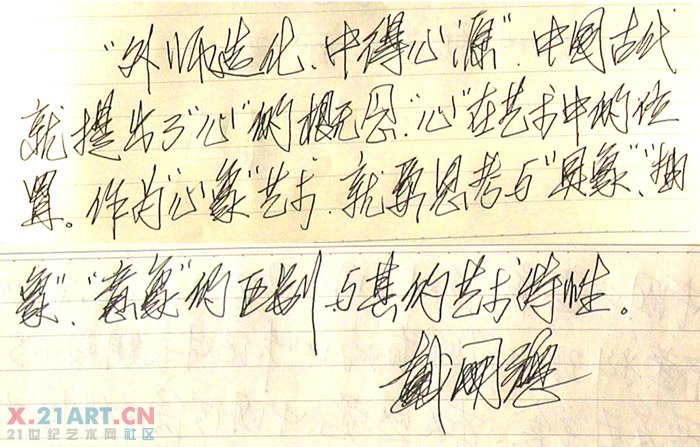 “外师造化、中得心源”.中国古代
就提出了“心”的概念.“心”在艺术中的位
置。作为“心象”艺术.就要思考与“具象”、“抽
象”、“意象”的区别与其的艺术特性。
戴国强
X.21ART.CN
21世纪艺术网社区